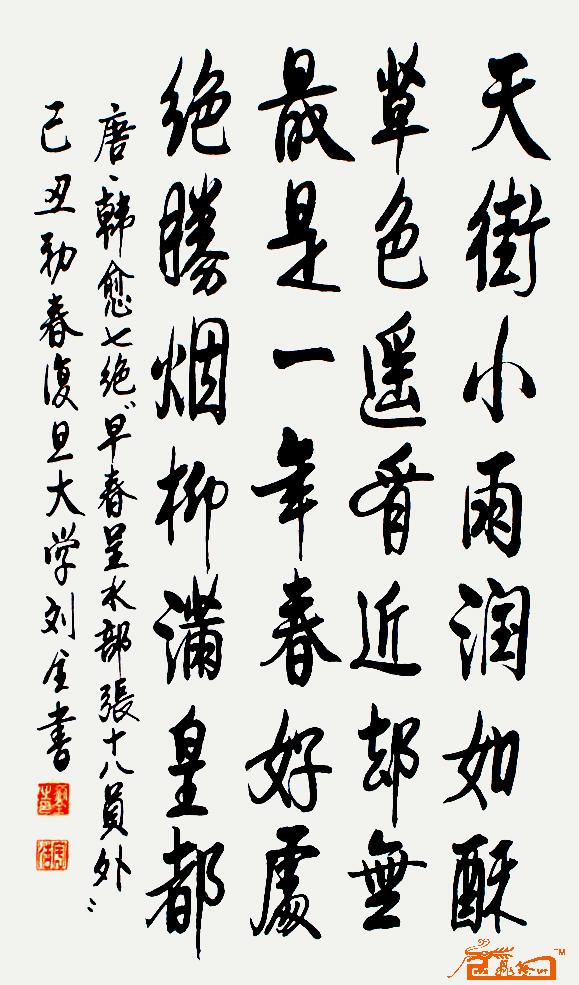 天街小雨润如酥
草色遥看近却無
最是一年春好處
绝勝烟柳满皇都
唐、韩愈七绝"早春呈水部張十八員外"
己丑初春復旦大学刘全書